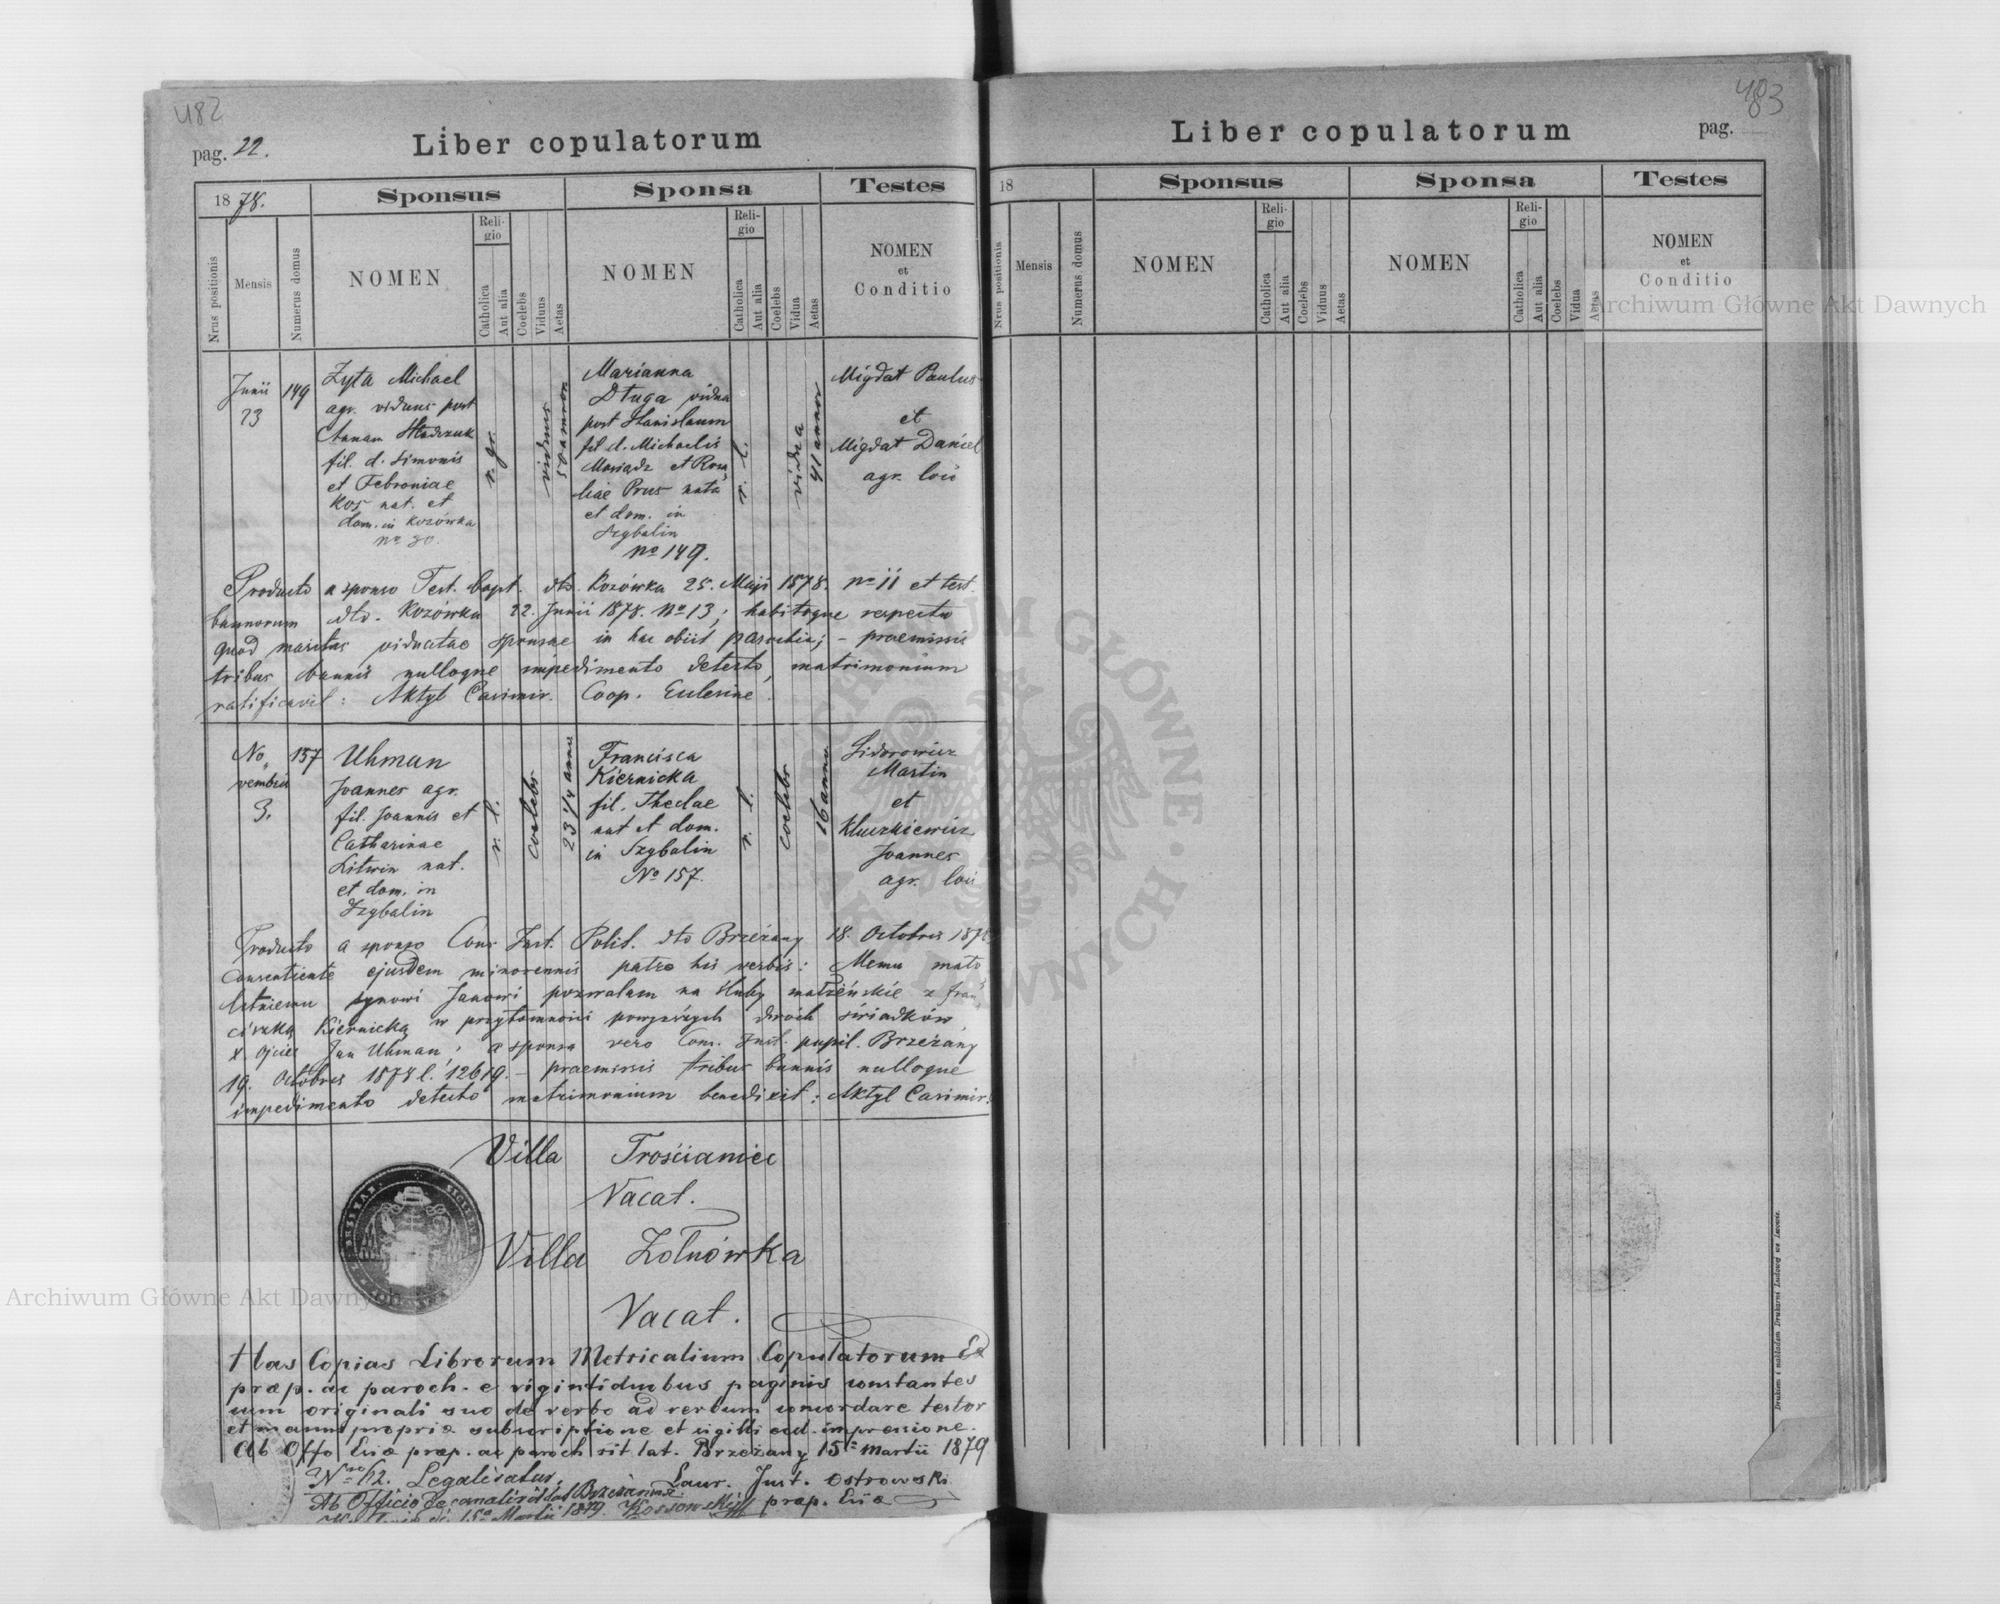 482
pag. 22.
Liber copulatorum
1878.
Sponsus
Sponsa
Testes
Nrus positionis
Mensis
Numerus domus
NOMEN
Religio
Catholica
Aut alia
Coelebs
Viduus
Aetas
NOMEN
Religio
Catholica
Aut alia
Coelebs
Vidua
Aetas
NOMEN
et
Conditio
Junii
23
149
Zyta Michael
agr. viduus post
Annam
fil. d. Simonis
et Febroniae
Kos nat. et
dom. in Kozówka
No 30.
r. gr.
viduus
50 annor
Marianna
Długa vidua
post Stanislaum
fil d. Michaelis
et Rosa
liae Prus nata
et dom. in
Szybalin
No 149.
r. l.
vidua
41 annor
Migdat Paulus
et
Migdat Daniel
agr. loci
Producto a sponso Test. bapt. dto. Kozówka 25. Maji 1878. No 11 et test.
bannorum dto. Kozówka 22. Junii 1878. No 13; habitoque respectu
quod maritus viduatae sponsae in hac obiit parochia; - praemissis
tribus bannis nulloque impedimento detecto, matrimonium
ratificavit: Aktyl Casimir. Coop. Eulesine.
No
vembris
3.
157
Uhman
Joannes agr.
fil. Joannis et
Catharinae
Litwin nat.
et dom. in
Szybalin
r. l.
coelebs
23 1/4 annor
Francisca
Kiernicka
fil. Theclae
nat et dom.
in Szybalin
No 157.
r. l.
coelebs
16 annor
Sidorowicz
Martin
et
Kluczkiewicz
Joannes
agr. loci
Producto a sponso Cons. Inst. Polit. dto Brzeżany 18. Octobris 1878
consentiente ejusdem minorennis patre his verbis: Memu mało
letniemu synowi Janowi pozwalam na śluby małżeńskie z Fran
ciszką Kiernicką w przytomności powyższych dwóch świadków,
x Ojciec Jan Uhman; a sponsa vero Cons. Inst. pupil. Brzeżany
19. Octobris 1878 l. 12619. - praemissis tribus bannis nulloque
impedimento detecto matrimonium benedixit: Aktyl Casimir.
Villa Trościaniec
Vacat.
Villa Żołnówka
Vacat.
Has Copias Librorum Metricalium Copulatorum Ex
præp. ac paroch. e vigintiduobus paginis constantes
cum originali suo de verbo ad verbum concordare testor
et manu propria subscriptione et sigilli eccl. impressione.
Ab Offo Eccliæ præp. ac paroch rit. lat. Brzeżany 15a Martii 1879
Nro 112. Legalisatur.
Laur. Just. Ostrowski
Ab Officio Decanali rit lat Brzeżanensi
præp. Eccliæ
15a Martii 1879. Kossowski
483
Liber copulatorum
pag.
18
Sponsus
Sponsa
Testes
Nrus positionis
Mensis
Numerus domus
NOMEN
Religio
Catholica
Aut alia
Coelebs
Viduus
Aetas
NOMEN
Religio
Catholica
Aut alia
Coelebs
Vidua
Aetas
NOMEN
et
Conditio
Drukiem i nakładem Drukarni Ludowej we Lwowie.
Archiwum Główne Akt Dawnych
Archiwum Główne Akt Dawnych
ARCHIWUM GŁÓWNE AKT DAWNYCH